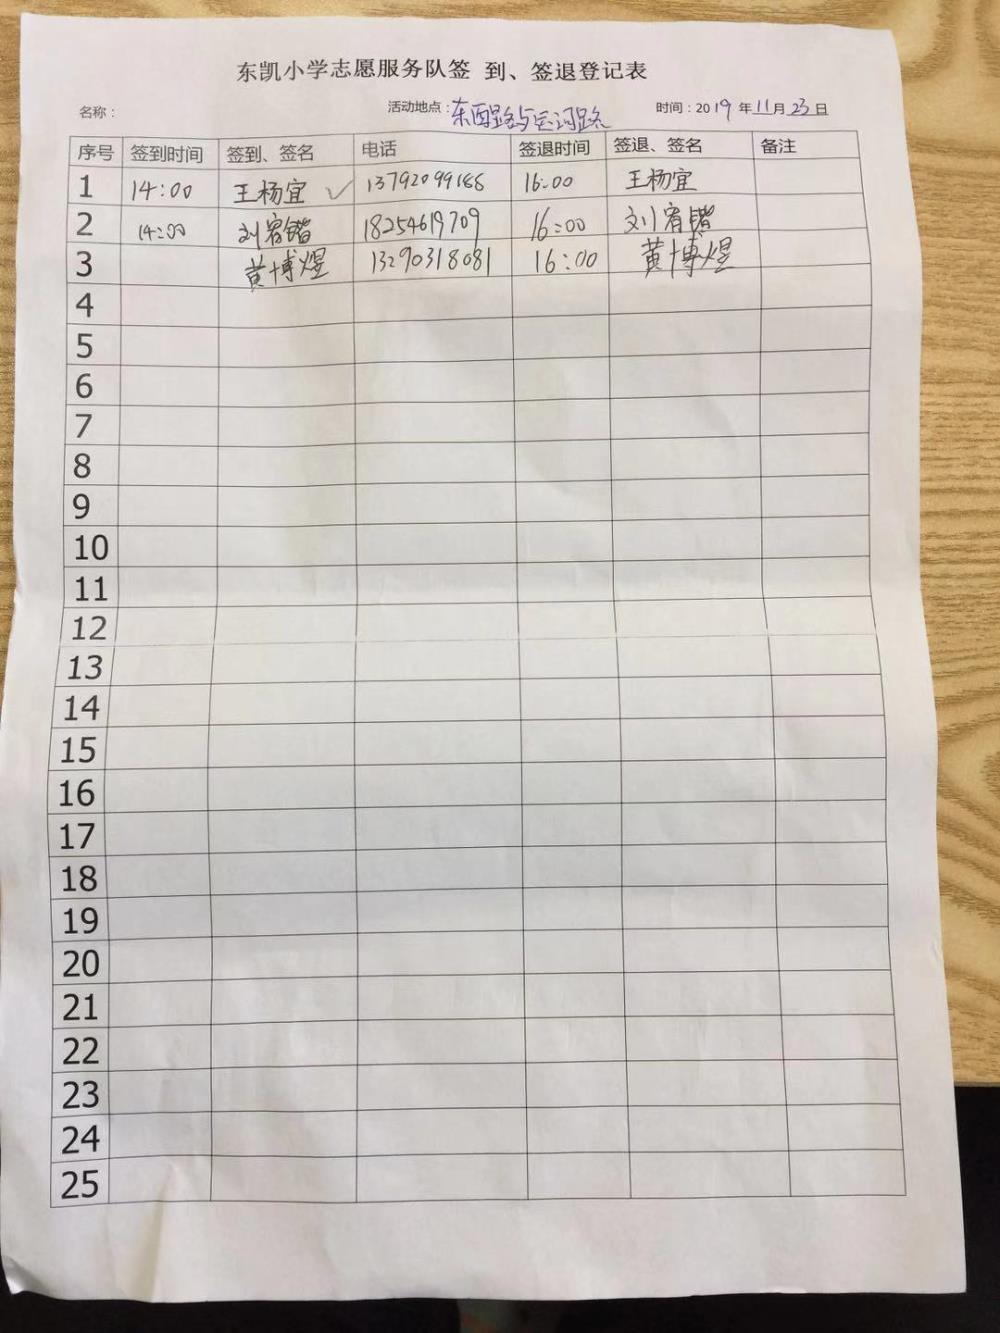 东凯小学志愿服务队签 到、签退登记表
名称： 活动地点：东西路与运河路 时间：2019年11月23日
序号 签到时间 签到、签名 电话 签退时间 签退、签名 备注
1 14:00 王杨宜 ✓ 13792099188 16:00 王杨宜
2 14:00 刘宥锴 18254619709 16:00 刘宥锴
3 黄博煜 13290318081 16:00 黄博煜
4
5
6
7
8
9
10
11
12
13
14
15
16
17
18
19
20
21
22
23
24
25